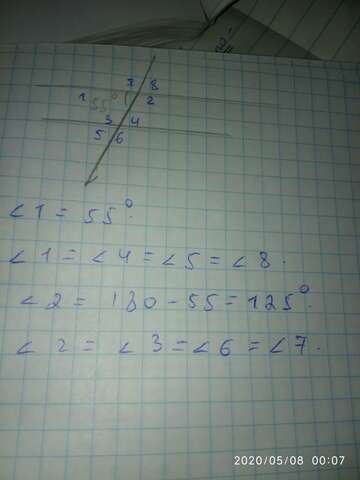 7 8
1 55° 2
3 4
5 6
∠1 = 55°.
∠1 = ∠4 = ∠5 = ∠8.
∠2 = 180 - 55 = 125°.
∠2 = ∠3 = ∠6 = ∠7.
2020/05/08 00:07